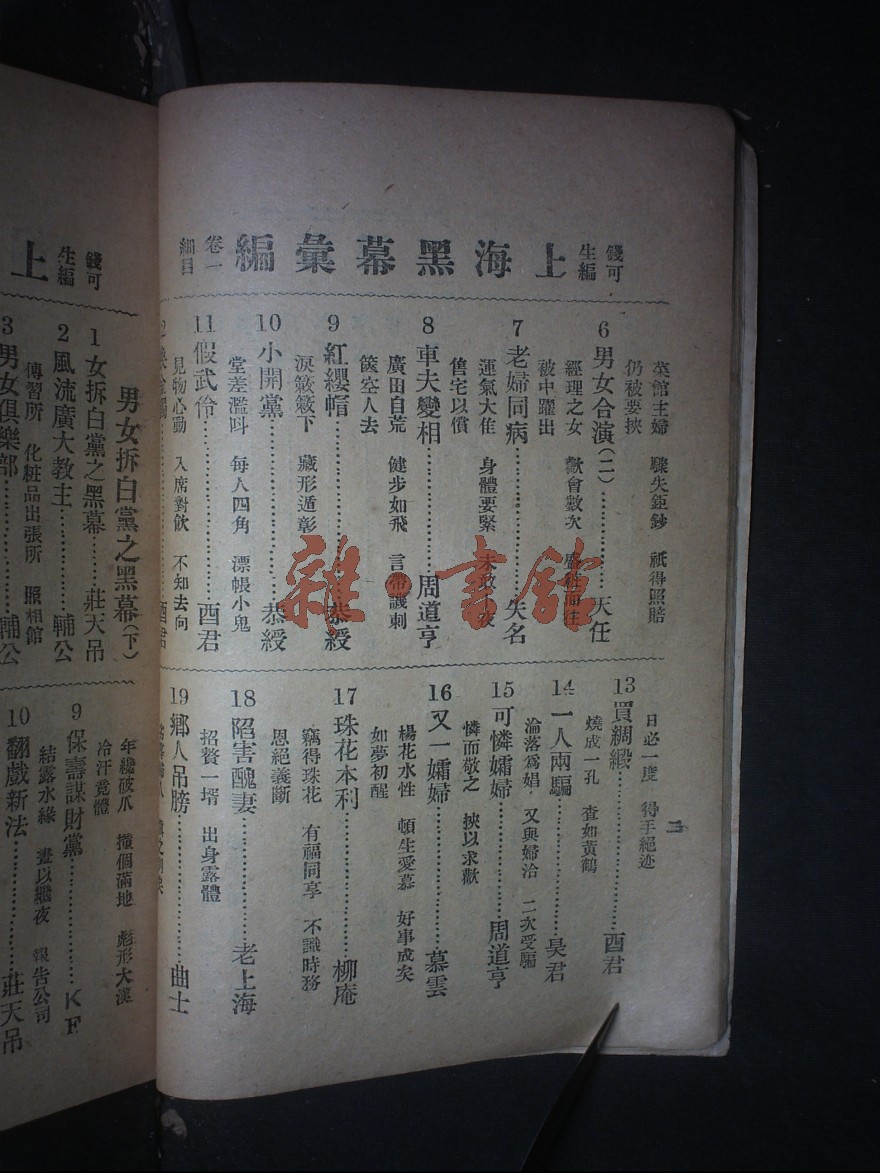 錢可
生編
上海黑幕彙編
卷一
細目
菜館主婦 驟失鉅鈔 祇得照賠
仍被要挾
6 男女合演(二)…………天任
經理之女 歡會數次
被中躍出
7 老婦同病…………失名
運氣大佳 身體要緊
售宅以償
8 車夫變相…………周道亨
廣田自荒 健步如飛 言帶譏刺
篋空人去
9 紅纓帽…………恭綬
淚簌簌下 藏形遁彰
10 小開黨…………恭綬
堂差濫叫 每人四角 漂帳小鬼
11 假武伶…………酉君
見物心動 入席對飲 不知去向
酉君
日必一度 得手絕迹
13 買綢緞…………酉君
燒成一孔 查如黃鶴
14 一人兩騙…………吳君
淪落爲娼 又與婦洽 二次受騙
15 可憐孀婦…………周道亨
憐而敬之 挾以求歡
16 又一孀婦…………慕雲
楊花水性 頓生愛慕 好事成矣
如夢初醒
17 珠花本利…………柳庵
竊得珠花 有福同享 不識時務
恩絕義斷
18 陷害醜妻…………老上海
招贅一壻 出身露體
19 鄉人吊膀…………曲士
二
雜·書館
錢可
生編
上
男女拆白黨之黑幕(下)
1 女拆白黨之黑幕……莊天吊
2 風流廣大教主…………輔公
傳習所 化粧品出張所 照相館
3 男女俱樂部…………輔公
年纔破爪 撞個滿地 彪形大漢
冷汗竟體
9 保壽謀財黨…………KF
結露水緣 晝以繼夜 報告公司
10 翻戲新法…………莊天吊